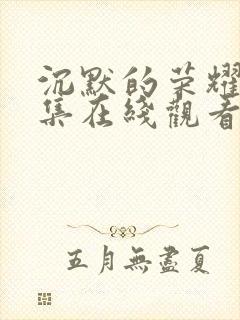 沉默的荣耀
集在綫觀看
五月無盡夏